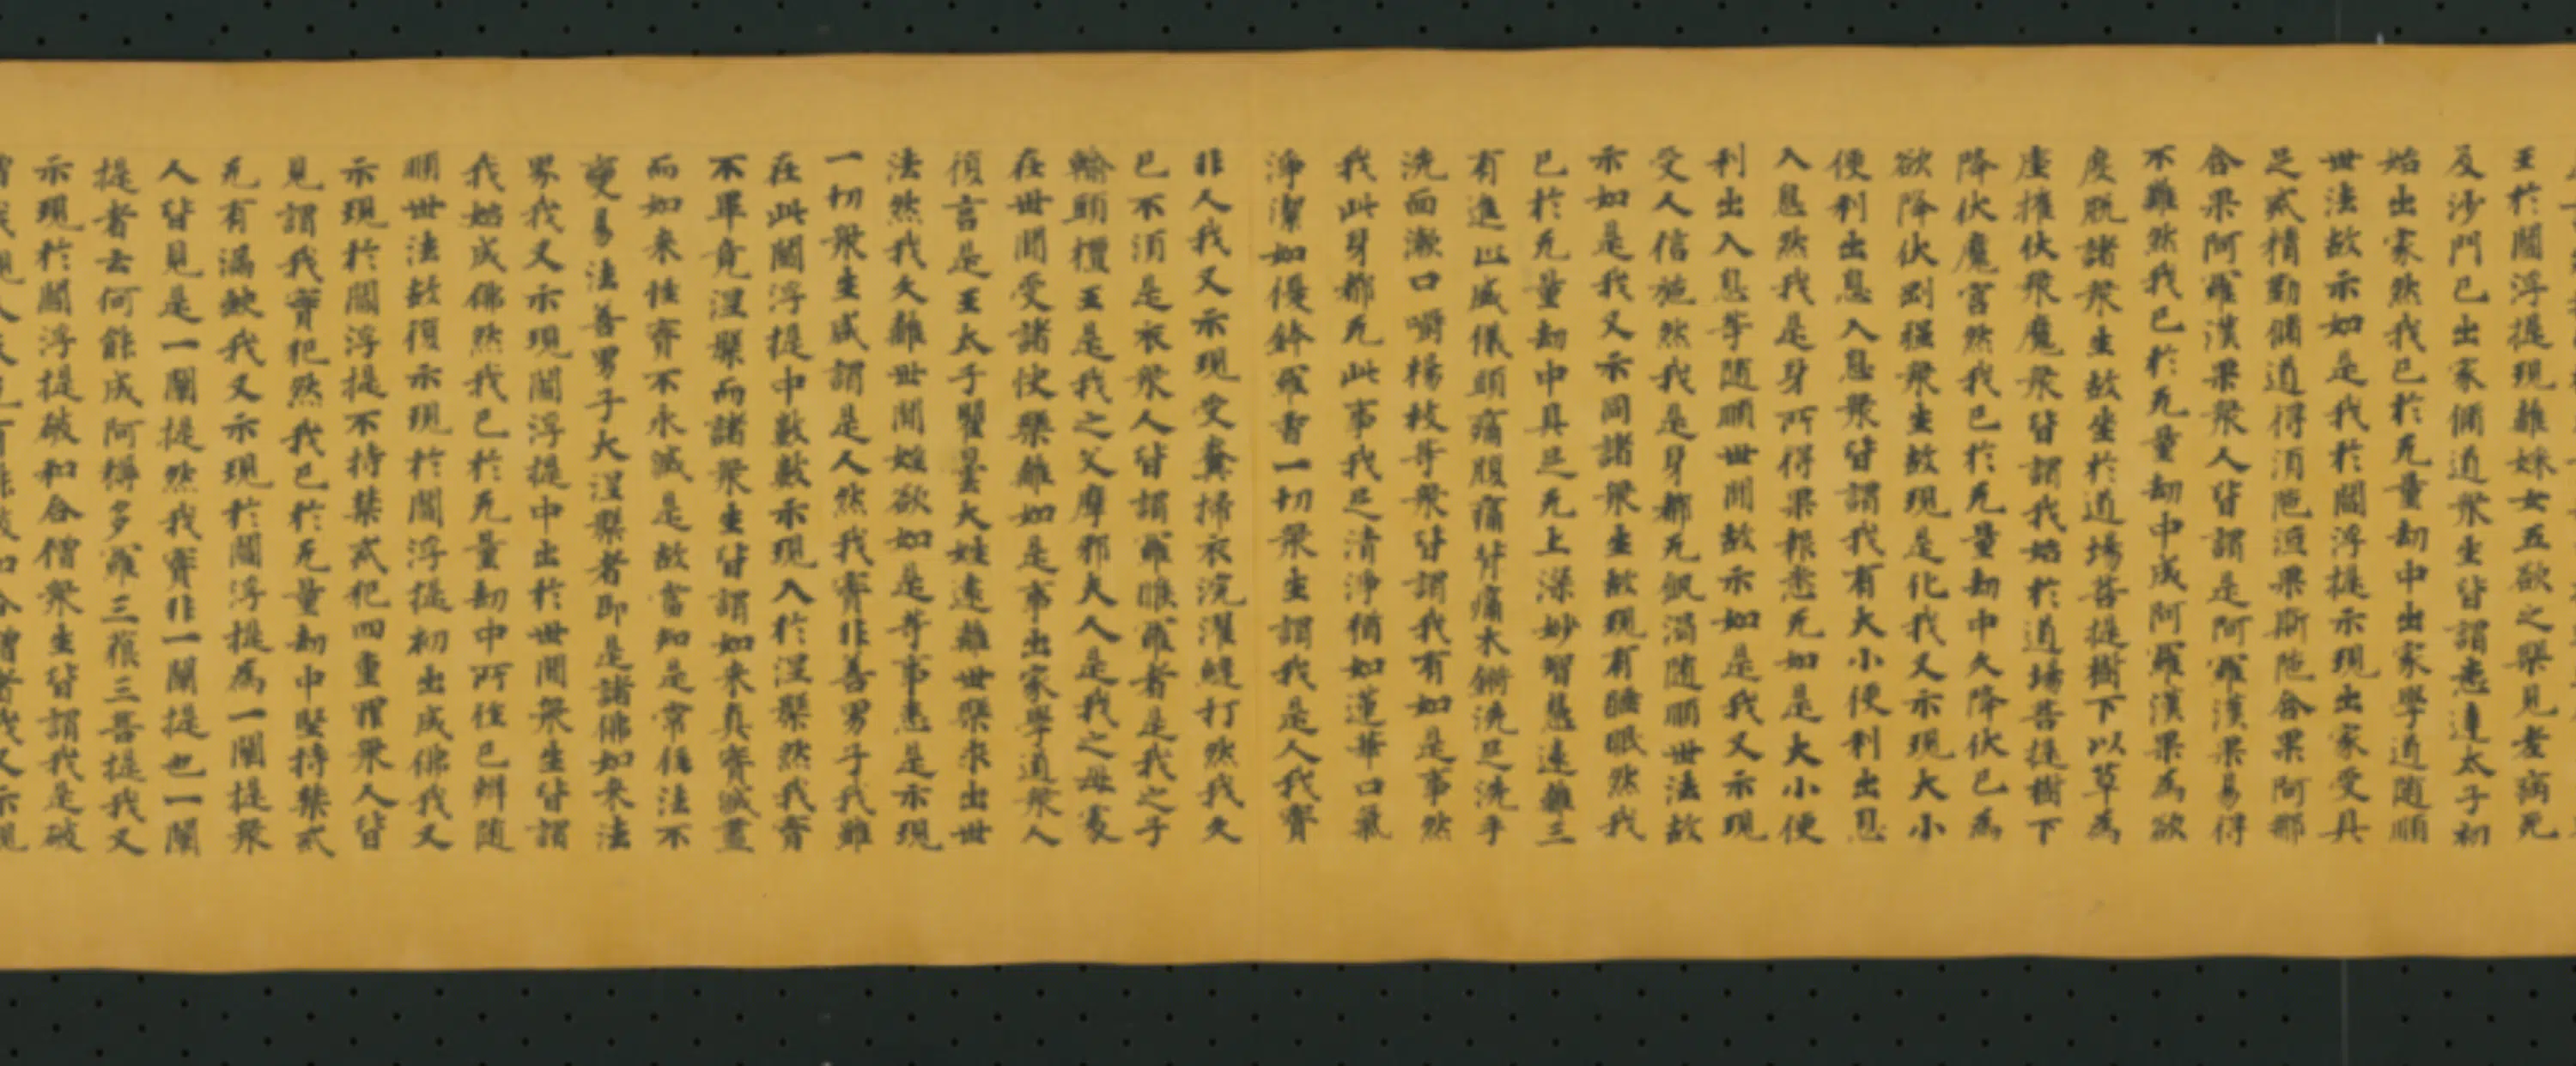 王於閻浮提現離婇女五欲之樂見老病死
及沙門已出家脩道衆生皆謂悉達太子初
始出家然我已於无量劫中出家學道随順
世法故示如是我於閻浮提示現出家受具
足戒精勤脩道得須陁洹果斯陁含果阿那
含果阿羅漢果衆人皆謂是阿羅漢果易得
不難然我已於无量劫中成阿羅漢果為欲
度脱諸衆生故坐於道場菩提樹下以草為
座摧伏衆魔衆皆謂我始於道場菩提樹下
降伏魔宮然我已於无量劫中久降伏已為
欲降伏剛強衆生故現是化我又示現大小
便利出息入息衆皆謂我有大小便利出息
入息然我是身所得果報悉无如是大小便
利出入息等随順世間故示如是我又示現
受人信施然我是身都无飢渴随順世法故
示如是我又示同諸衆生故現有睡眠然我
已於无量劫中具足无上深妙智慧遠離三
有進止威儀頭痛腹痛背痛木鏘洗足洗手
洗面漱口嚼楊枝等衆皆謂我有如是事然
我此身都无此事我足清淨猶如蓮華口氣
淨潔如優鉢羅香一切衆生謂我是人我實
非人我又示現受糞掃衣浣濯縫打然我久
已不須是衣衆人皆謂羅睺羅者是我之子
輸頭檀王是我之父摩耶夫人是我之母處
在世間受諸快樂離如是事出家學道衆人
復言是王太子瞿曇大姓遠離世樂求出世
法然我久離世間婬欲如是等事悉是示現
一切衆生咸謂是人然我實非善男子我雖
在此閻浮提中數數示現入於涅槃然我實
不畢竟涅槃而諸衆生皆謂如來真實滅盡
而如来性實不永滅是故當知是常住法不
變易法善男子大涅槃者即是諸佛如来法
界我又示現閻浮提中出於世間衆生皆謂
我始成佛然我已於无量劫中所作已辦随
順世法故復示現於閻浮提初出成佛我又
示現於閻浮提不持禁戒犯四重罪衆人皆
見謂我實犯然我已於无量劫中堅持禁戒
无有漏缺我又示現於閻浮提為一闡提衆
人皆見是一闡提然我實非一闡提也一闡
提者云何能成阿耨多羅三藐三菩提我又
示現於閻浮提破和合僧衆生皆謂我是破